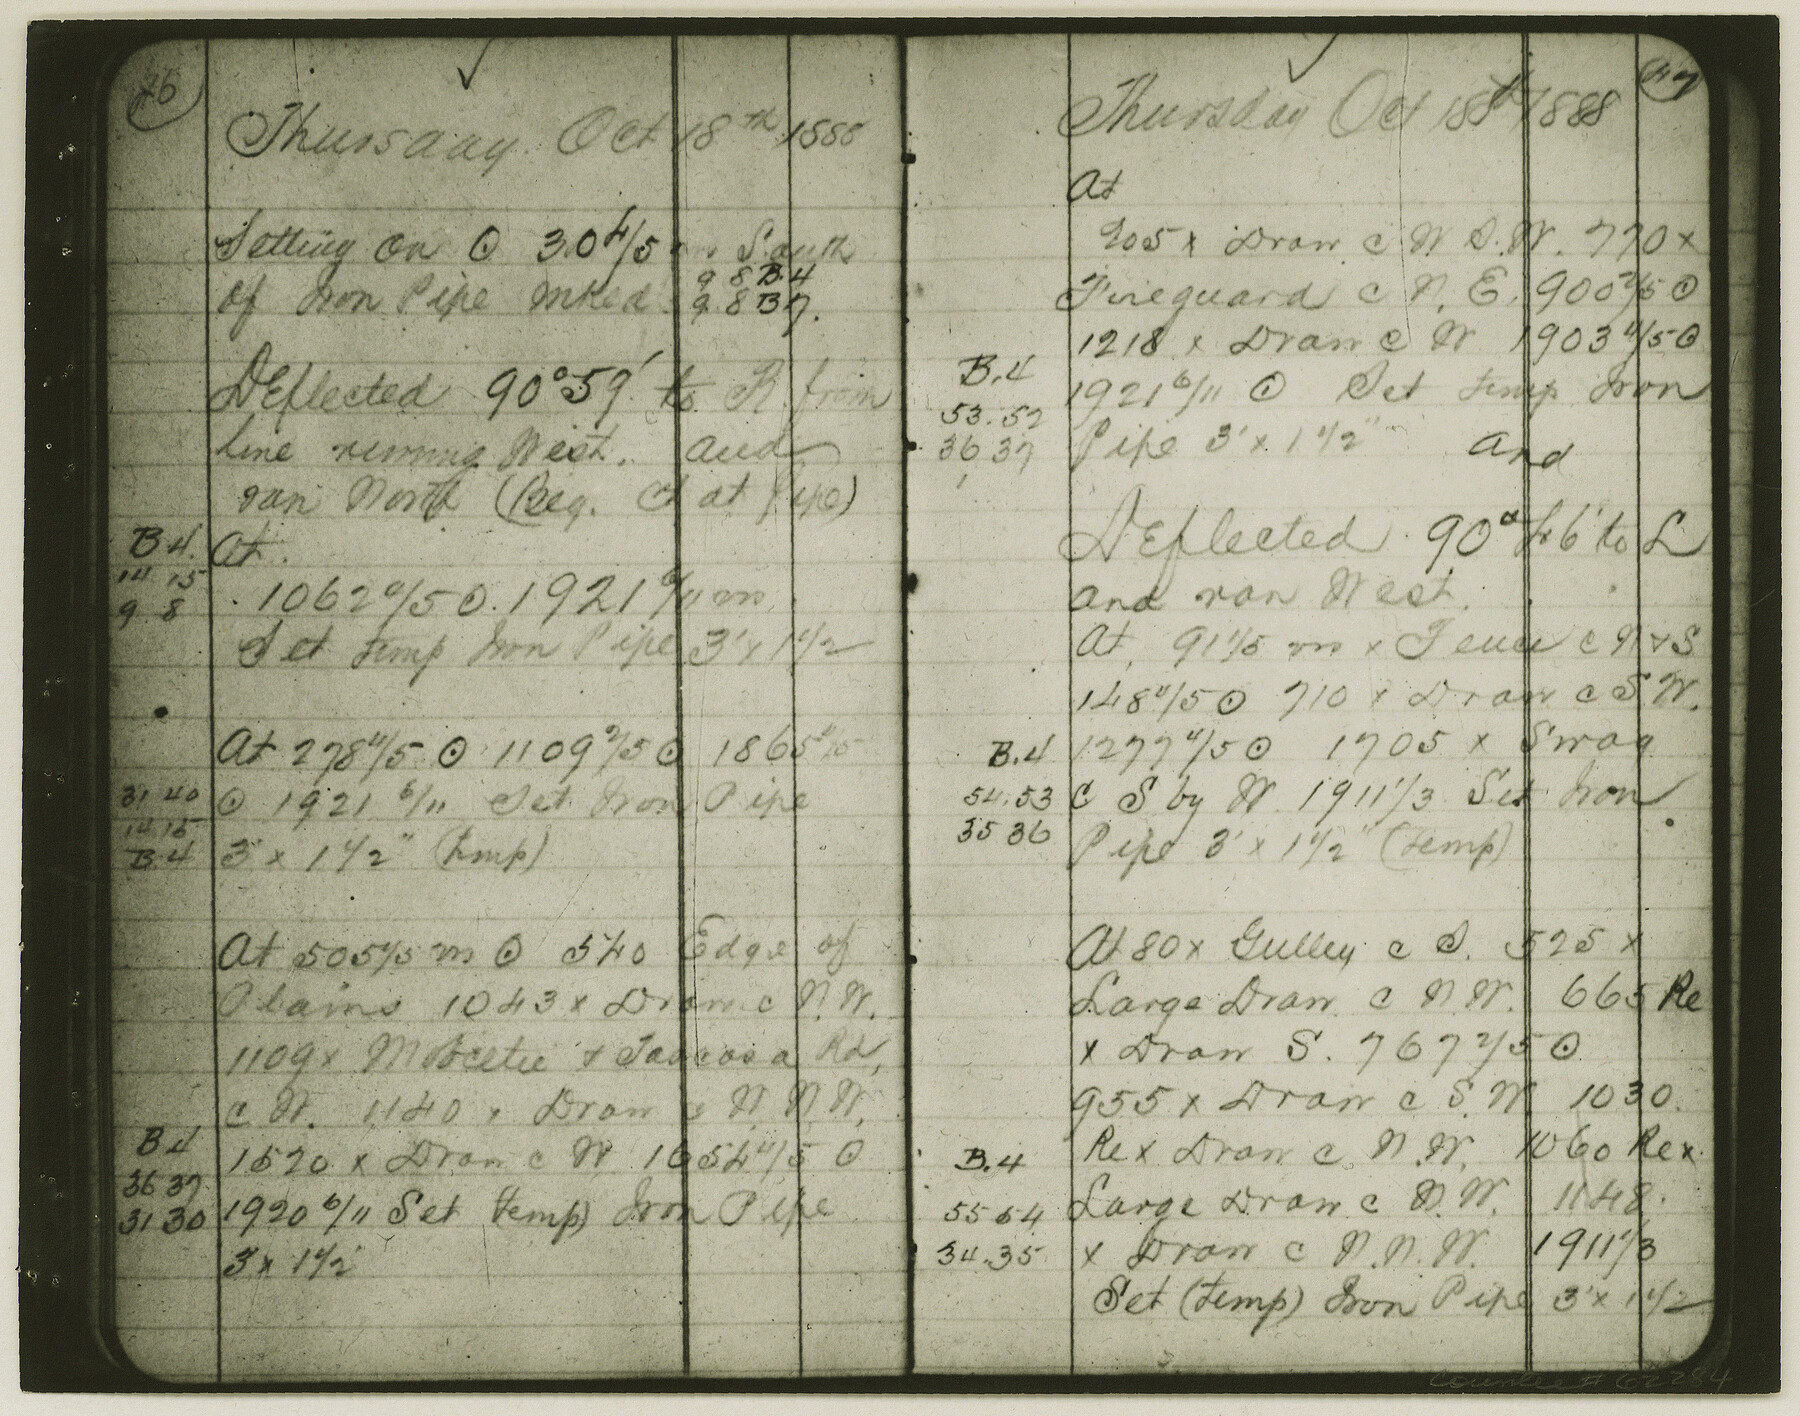 46
Thursday Oct 18th 1888
Setting on ⊙ 30 4/5 South
of Iron Pipe mked 9 8 B.4
9 8 B 7.
Deflected 90°59' to R from
line running West. and
ran North (Beg. Ct at Pipe)
B 4.
14 15
9 8
At.
1062 4/5 ⊙. 1921 6/11 m
Set temp Iron Pipe 3' x 1 1/2
At 278 4/5 ⊙ 1109 2/5 ⊙ 1865
31 40
14 15
B.4
⊙ 1921 6/11 Set Iron Pipe
3' x 1 1/2" (temp)
At 505 4/5 m ⊙ 540 Edge of
Plains 1043 x Draw c N.W.
1109 x Mobeetie & Tascosa Rd,
c W. 1140 x Draw c N.N.W.
B 4
36 37
31 30
1520 x Draw c W 1654 4/5 ⊙
1920 6/11 Set temp) Iron Pipe
3' x 1 1/2
47
Thursday Oct 18th 1888
At
205 x Draw c W S.W. 770 x
Fireguard c N.E. 900 2/5 ⊙
1218 x Draw c W 1903 4/5 ⊙
B.4
53.52
36 37
1921 6/11 ⊙ Set temp Iron
Pipe 3' x 1 1/2" and
Deflected 90° 46' to L
and ran West.
At, 91 1/5 m x Fence c N & S
148 4/5 ⊙ 710 x Draw c S.W.
B.4
54.53
35 36
1277 4/5 ⊙ 1705 x Swag
c S by W 1911 1/3 Set Iron
Pipe 3' x 1 1/2" (temp)
At 80 x Gulley c S. 525 x
Large Draw c N.W. 665 Re
x Draw S. 767 2/5 ⊙
955 x Draw c S.W. 1030.
B.4
55 54
34.35
Re x Draw c N.W. 1060 Re x
Large Draw c N.W. 1148.
x Draw c N.N.W. 1911 1/3
Set (temp) Iron Pipe 3' x 1 1/2
counter # 62284